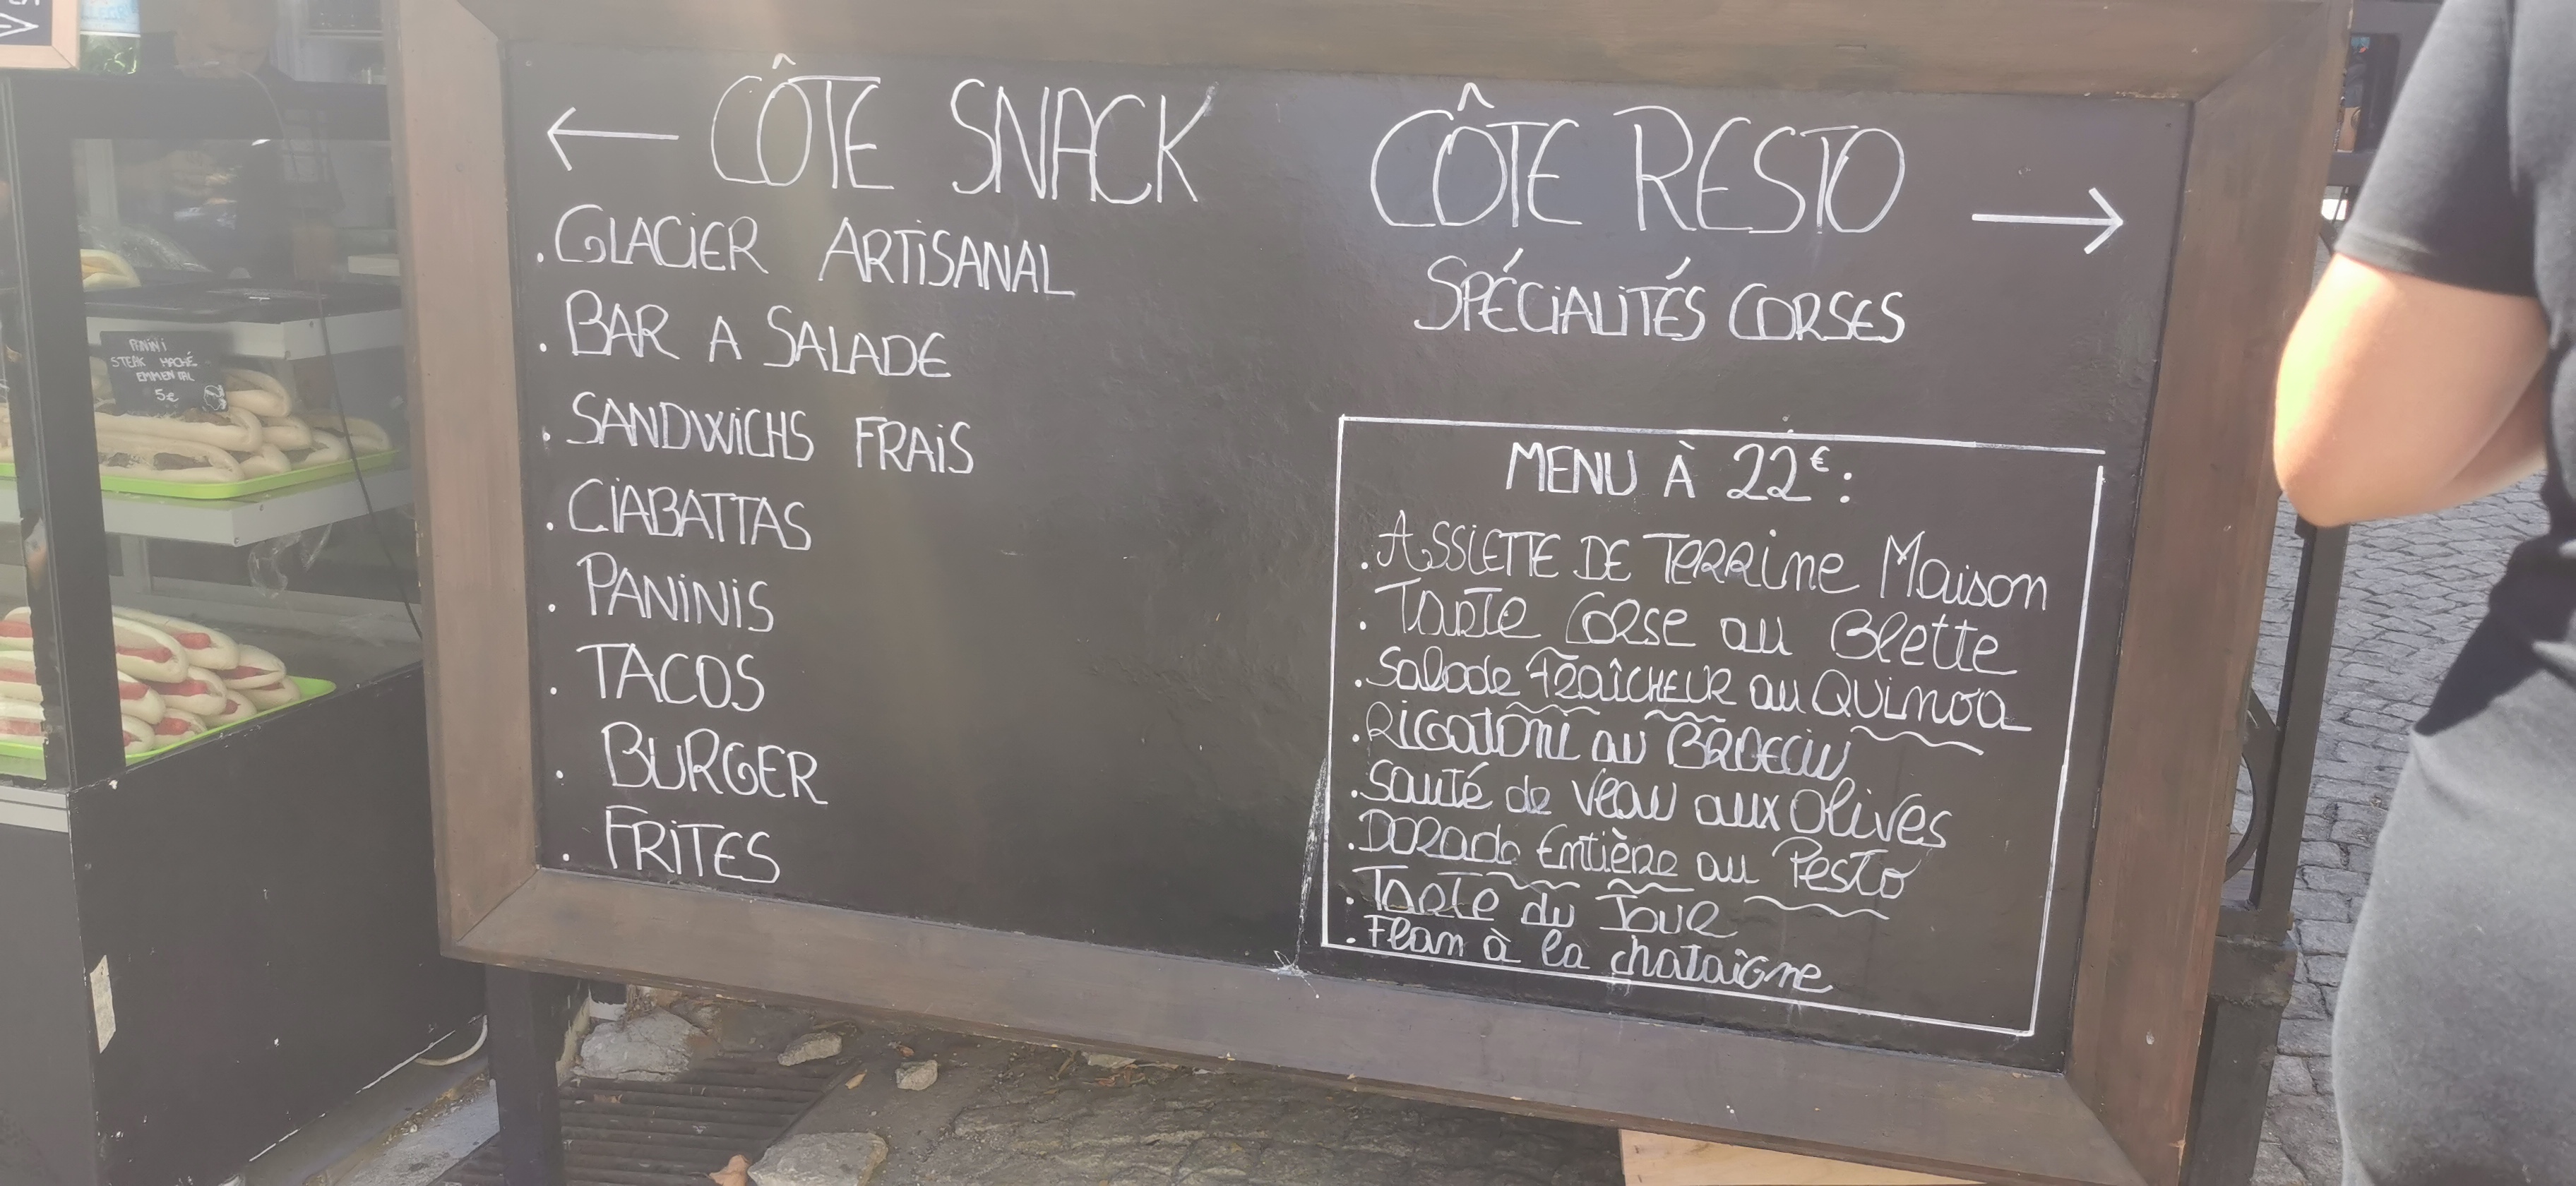 ← CÔTE SNACK
. GLACIER ARTISANAL
. BAR A SALADE
. SANDWICHS FRAIS
. CIABATTAS
. PANINIS
. TACOS
. BURGER
. FRITES
CÔTE RESTO →
SPÉCIALITÉS CORSES
MENU À 22€ :
. ASSIETTE DE TERRINE Maison
. Tarte Corse au Blette
. Salade FRAÎCHEUR au QUINOA
. RIGATONI au BROCCIU
. Sauté de Veau aux Olives
. DORADE Entière au Pesto
. Tarte du Jour
. Flan à la chataigne
PANINI
STEAK HACHÉ
EMMENTAL
5€